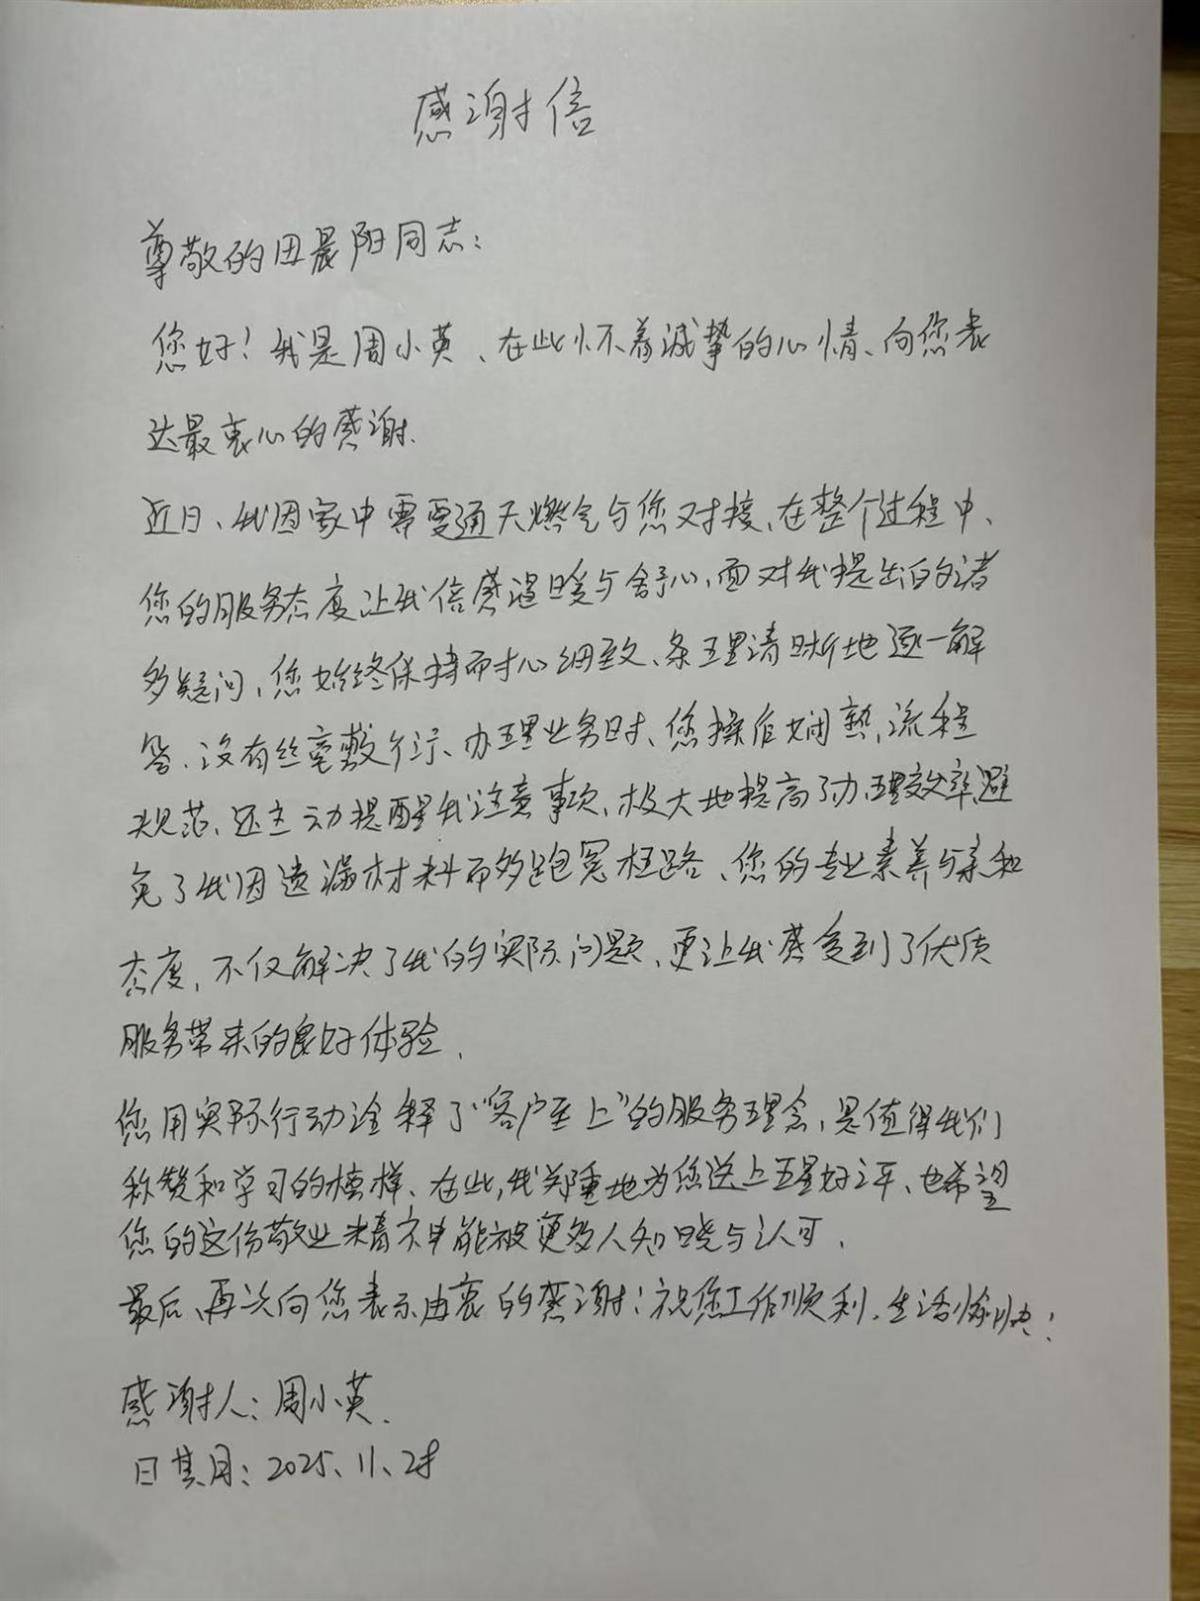 感谢信
尊敬的田晨阳同志:
您好!我是周小英、在此怀着诚挚的心情、向您表
达最衷心的感谢.
近日、我因家中需要通天燃气与您对接、在整个过程中、
您的服务态度让我倍感温暖与舒心、面对我提出的诸
多疑问、您始终保持耐心细致、条理清晰地逐一解
答、没有丝毫敷衍、办理业务时、您操作娴熟,流程
规范、还主动提醒我注意事项、极大地提高了办理效率,避
免了我因遗漏材料而多跑冤枉路、您的专业素养与亲和
态度,不仅解决了我的实际问题、更让我感受到了优质
服务带来的良好体验.
您用实际行动诠释了“客户至上”的服务理念,是值得我们
称赞和学习的榜样、在此,我郑重地为您送上五星好评、也希望
您的这份敬业精神能被更多人知晓与认可.
最后、再次向您表示由衷的感谢!祝您工作顺利,生活愉快!
感谢人:周小英.
日期:2025、11、28